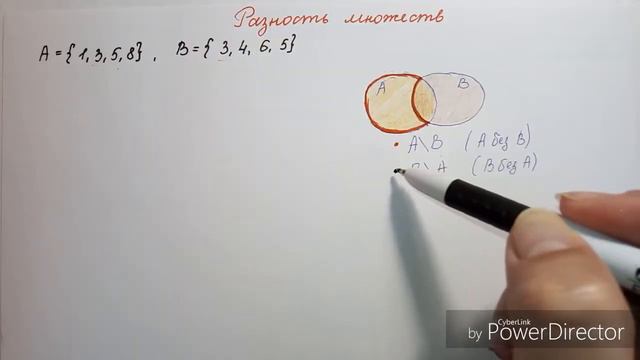 Разность множеств
A = { 1, 3, 5, 8 } , B = { 3, 4, 6, 5 }
A B
• A \ B ( A без B )
B \ A ( B без A )
CyberLink
by PowerDirector